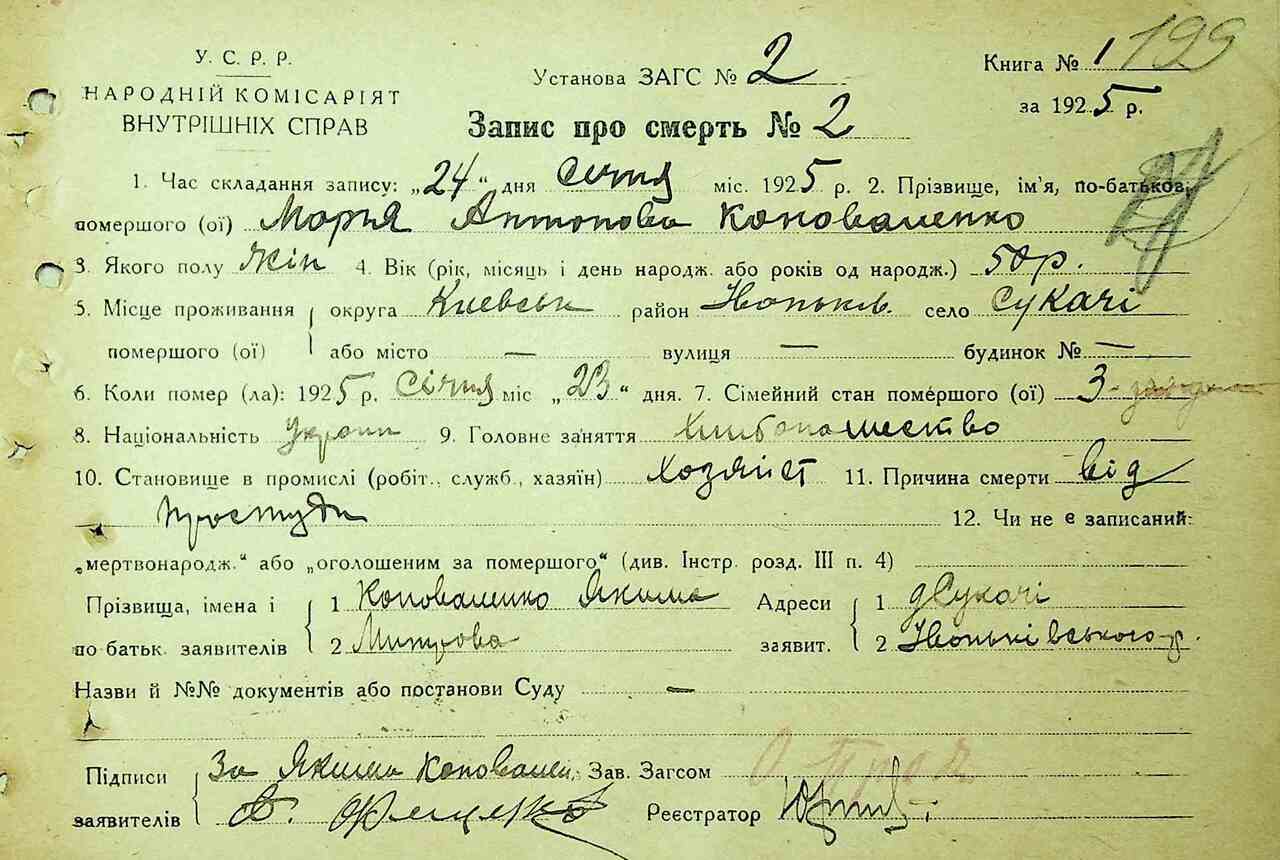 У. С. Р. Р.
НАРОДНІЙ КОМІСАРІЯТ
ВНУТРІШНІХ СПРАВ
Установа ЗАГС № 2
Запис про смерть № 2
Книга № 1 199
за 1925 р.
1. Час складання запису: „24“ дня Січня міс. 1925 р. 2. Прізвище, ім'я, по-батьков.
помершого (ої) Марія Антонова Коноваленко
3. Якого полу жін 4. Вік (рік, місяць і день народж. або років од народж.) 50 р.
5. Місце проживання округа Киевськ район Іваньків. село Сукачі
помершого (ої) або місто — вулиця — будинок № —
6. Коли помер (ла): 1925 р. Січня міс „23“ дня. 7. Сімейний стан помершого (ої) 3
8. Національність Україн 9. Головне заняття Хлібопашество
10. Становище в промислі (робіт., служб., хазяїн) Хозяйст 11. Причина смерти від
простуди 12. Чи не є записаний:
„мертвонародж.“ або „оголошеним за помершого“ (див. Інстр. розд. III п. 4)
Прізвища, імена і 1 Коноваленко Якима Адреси 1 Сукачі
по батьк. заявителів 2 Митрова заявит. 2 Іваньківського р.
Назви й №№ документів або постанови Суду —
Підписи За Якима Коновален. Зав. Загсом
заявителів Реєстратор